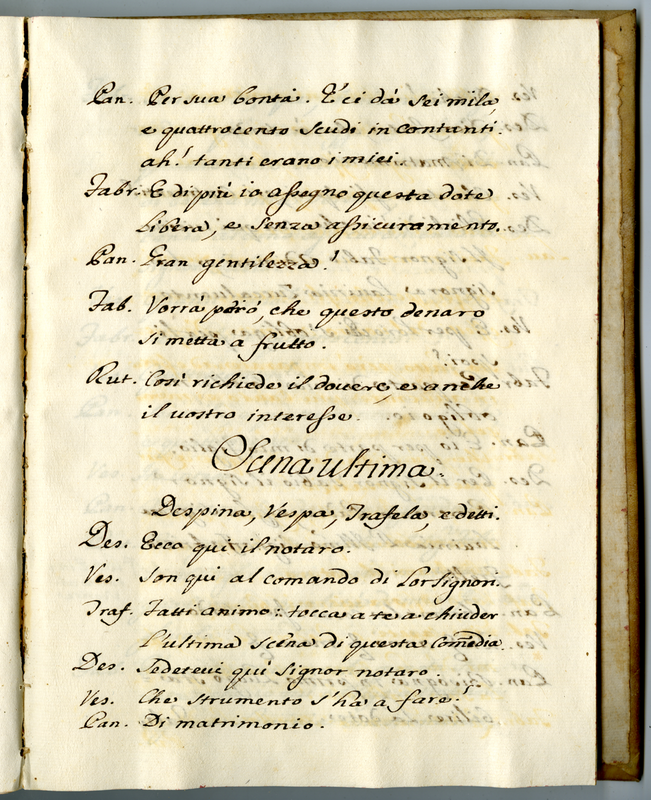 Pan. Per sua bontà. E ci dà sei mila,
e quattrocento scudi in contanti.
ah! tanti erano i miei.
Fabr. E di più io assegno questa dote
Libera, e senza assicuramento.
Pan. Gran gentilezza!
Fab. Vorrà però, che questo denaro
si metta a frutto.
Rut. Così richiede il dovere, e anche
il vostro interesse.
Scena ultima.
Despina, Vespa, Trafela, e detti.
Des. Ecco qui il notaro.
Ves. Son qui al comando di Lor Signori.
Traf. Fatti animo: tocca a te a chiuder
L'ultima scena di questa Comedia.
Des. Sedetevi quì Signor notaro.
Ves. Che strumento s'ha a fare?
Pan. Di matrimonio.